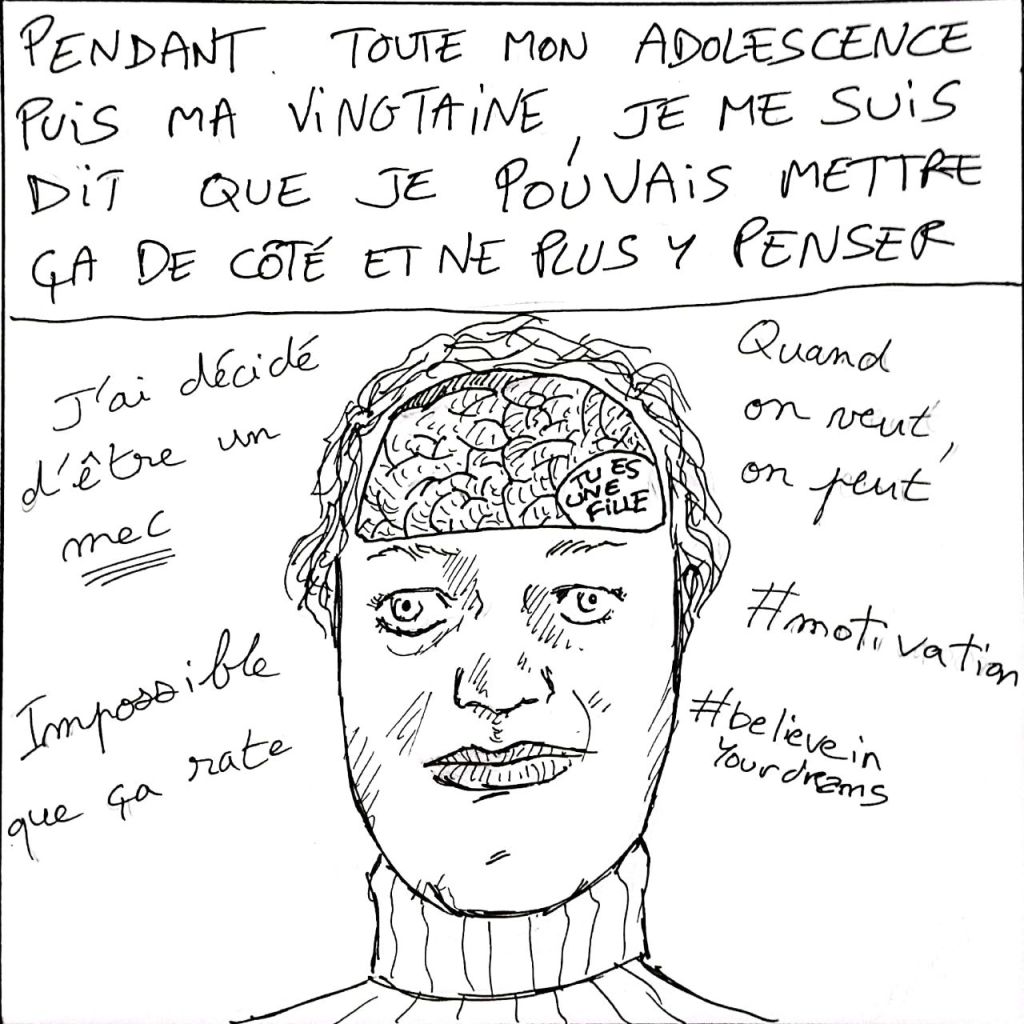 PENDANT TOUTE MON ADOLESCENCE
PUIS MA VINGTAINE, JE ME SUIS
DIT QUE JE POUVAIS METTRE
ÇA DE CÔTÉ ET NE PLUS Y PENSER
J'ai décidé
d'être un
mec
Quand
on veut,
on peut
TU ES
UNE
FILLE
Impossible
que ça rate
#motivation
#believein
Yourdreams